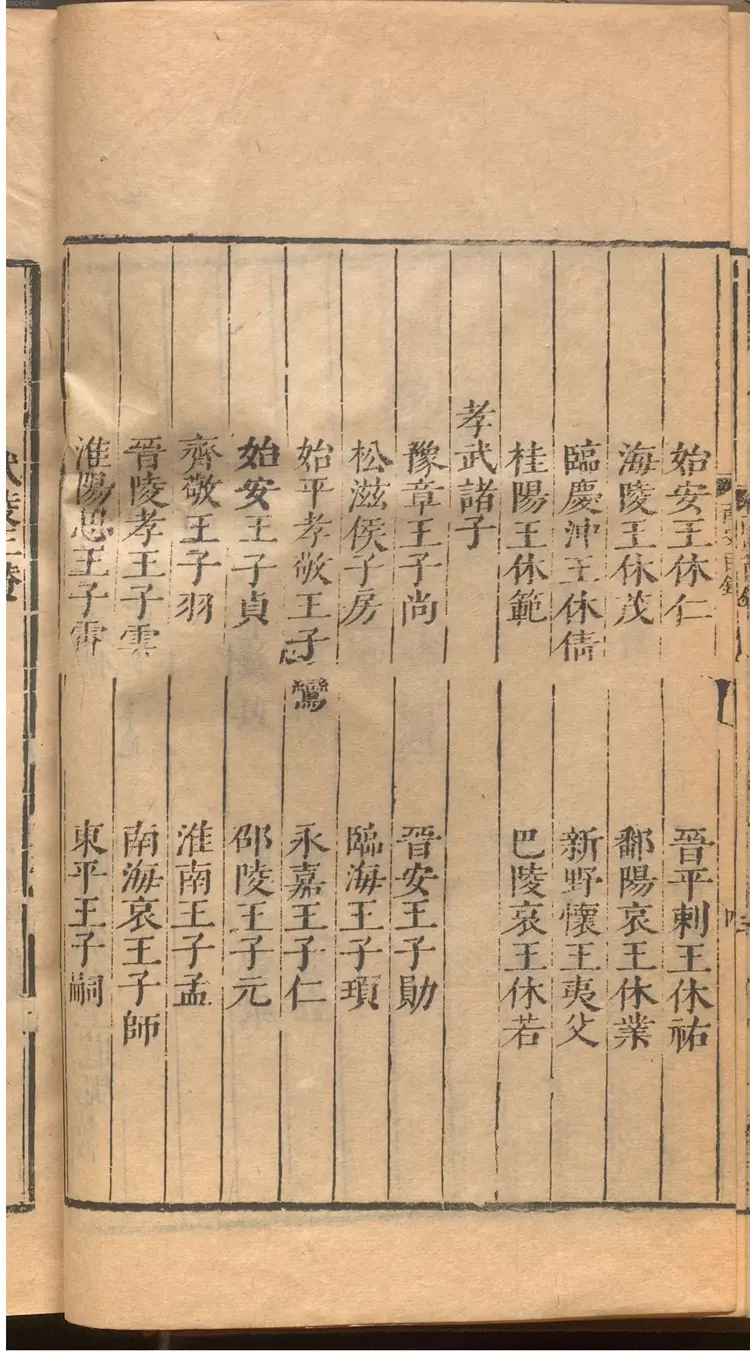 始安王休仁
晉平剌王休祐
海陵王休茂
鄱陽哀王休業
臨慶沖王休倩
新野懷王夷父
桂陽王休範
巴陵哀王休若
孝武諸子
豫章王子尚
晉安王子勛
松滋侯子房
臨海王子頊
始平孝敬王子鸞
永嘉王子仁
始安王子貞
邵陵王子元
齊敬王子羽
淮南王子孟
晉陵孝王子雲
南海哀王子師
淮陽思王子霄
東平王子嗣